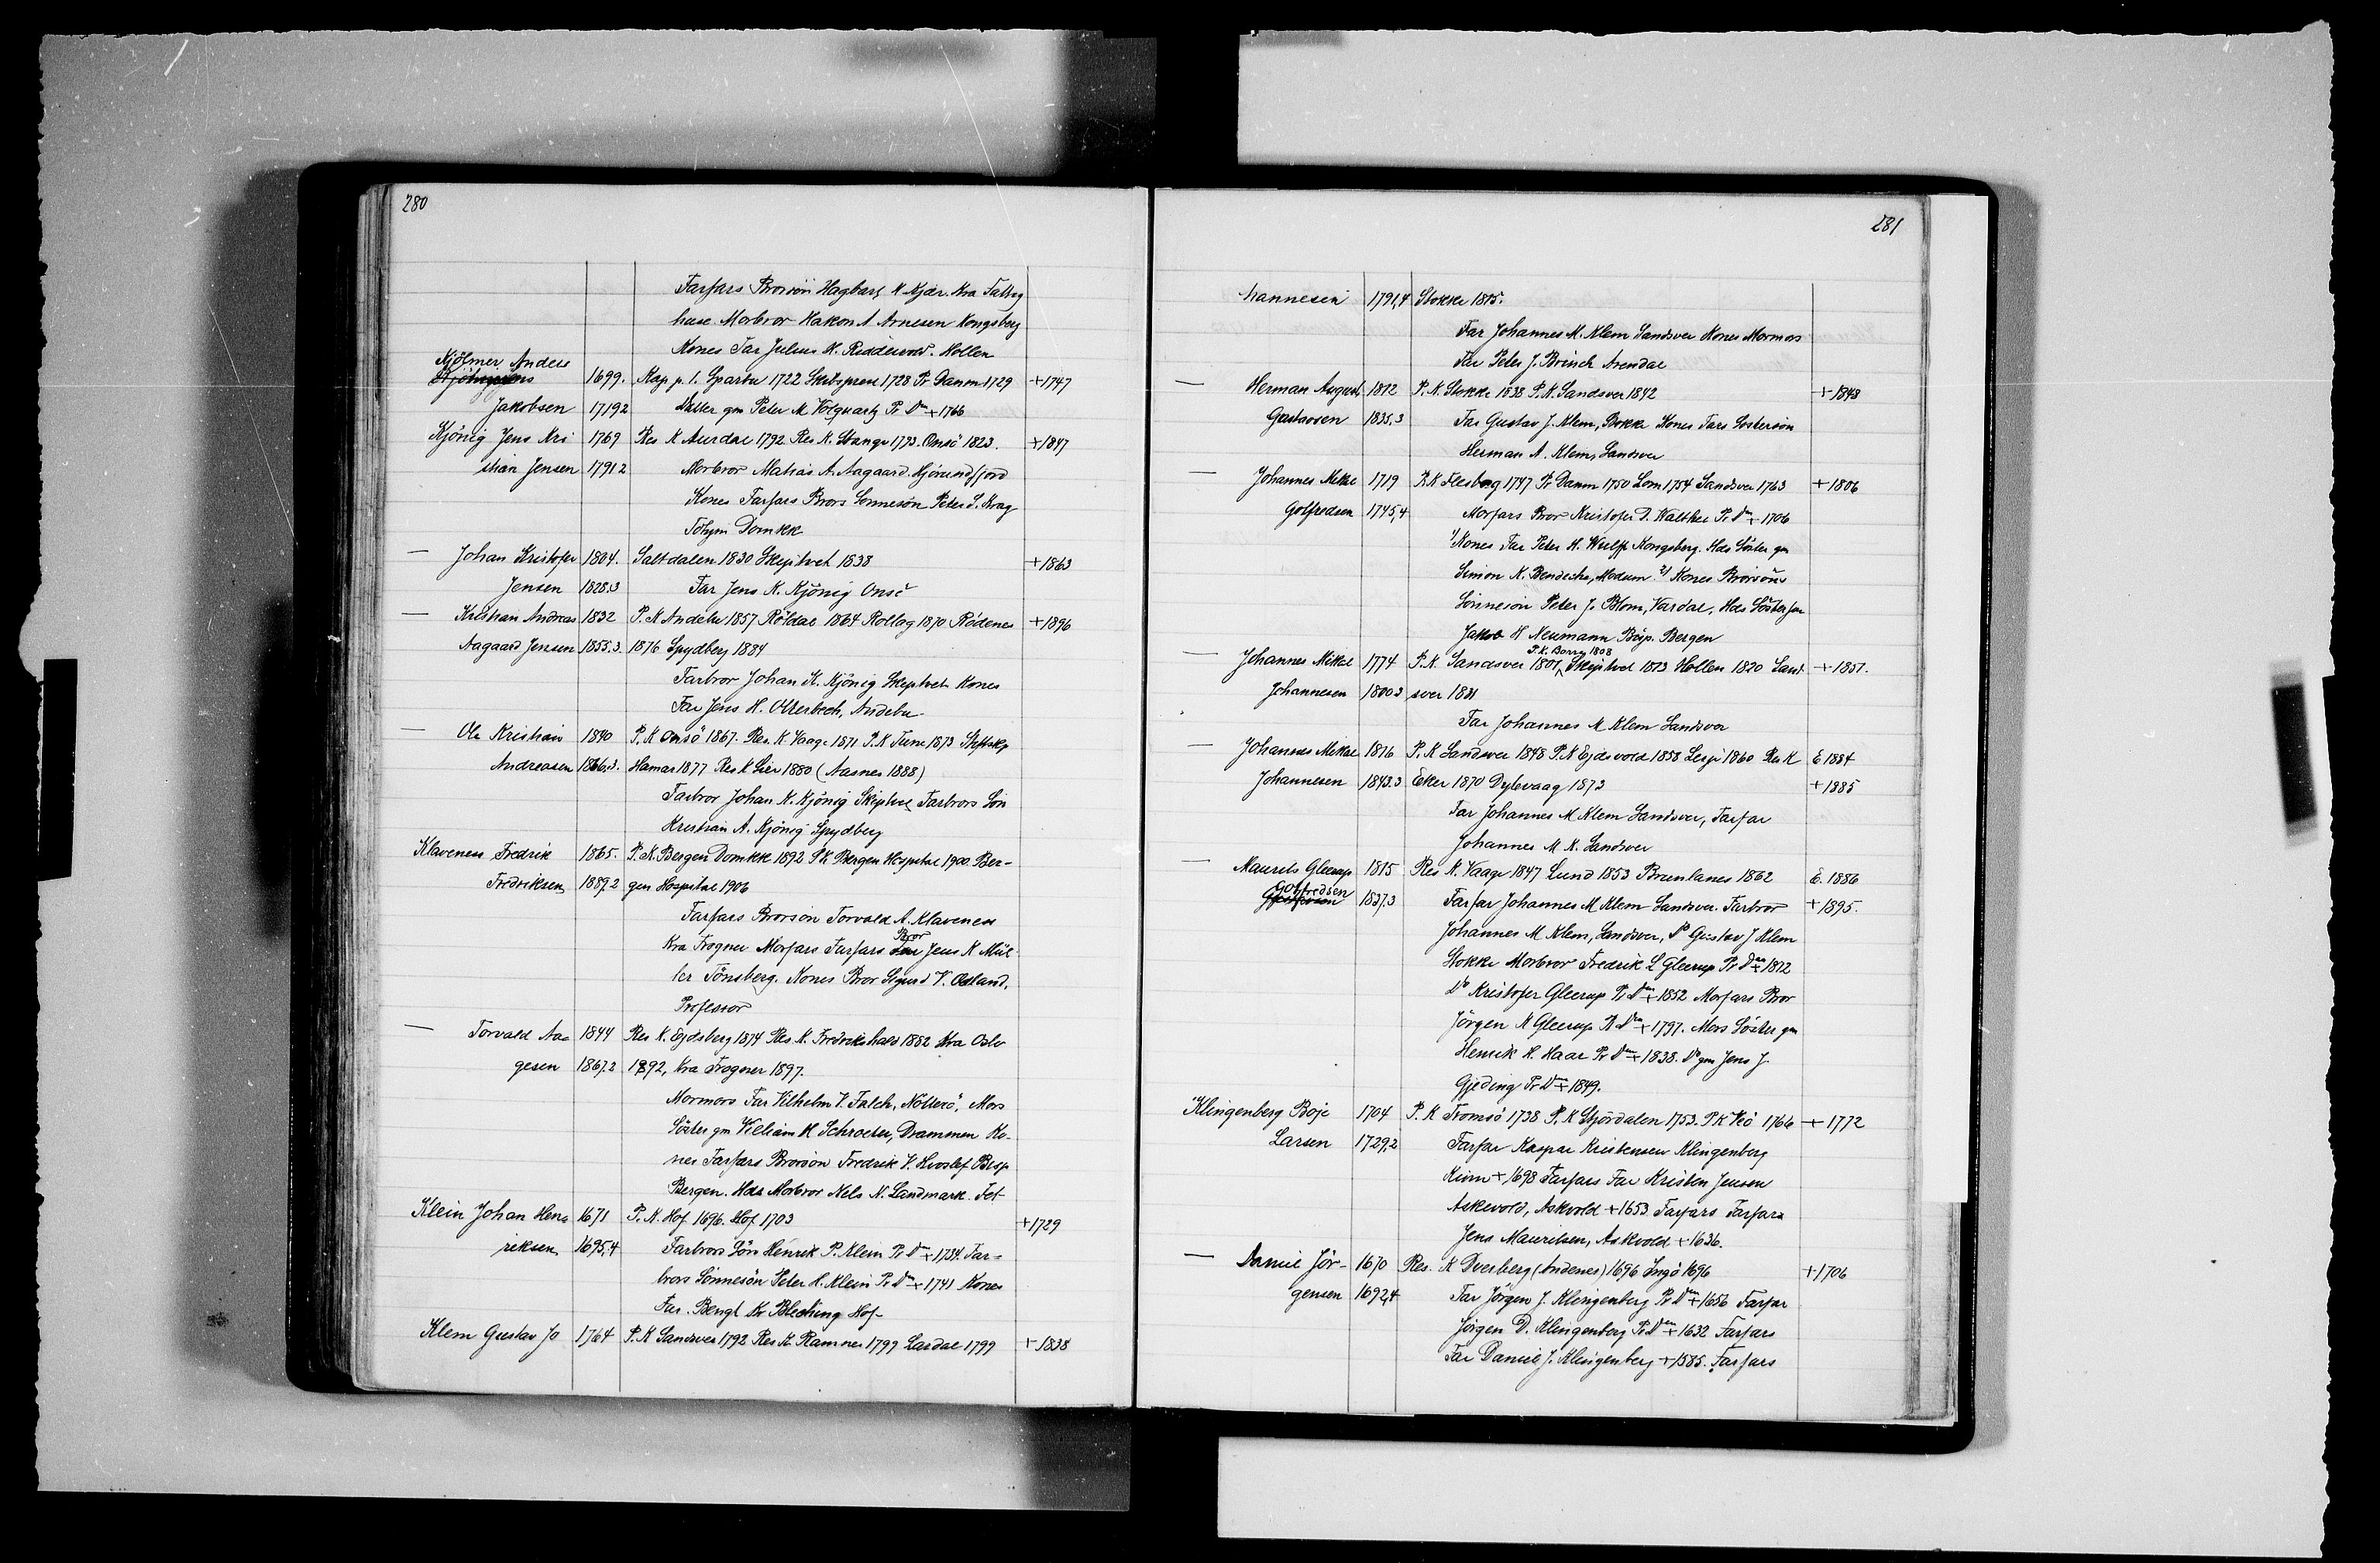 280
Farfars Brorsön Hagbart K Kjær. Kra Fattig
huse. Morbror Hakon A Arnesen Kongsberg
Kones Far Julius H. Riddervold. Hollen
Kjölmer Anders 1699. Kap p. l. Sparbu 1722 Skibsprest 1728 Pr. Danm 1729 +1747
Jakobsen 1719.2 Datter gm Peter M Volquartz Pr. Dm + 1766
Kjönig Jens Kri 1769 Res K Aurdal 1792 Res K. Stange 1773. Onsö 1823. +1847
stian Jensen 1791.2 Morbror Matias A. Aagaard. Hjörundfjord
Kones Farfars Brors Sönnesön Peter S. Krag
Tdhjm Domkk
— Johan Kristofer 1804. Saltdalen 1830 Skiptvet 1838 +1863
Jensen 1828.3 Far Jens K. Kjönig Onsö
— Kristian Andreas 1832 P. K Andebu 1857 Röldal 1864 Rollag 1870 Rödenes +1896
Aagaard Jensen 1855.3. 1876 Spydberg 1884
Farbror Johan K. Kjönig Skiptvet Kones
Far Jens H. Otterbech, Andebu
— Ole Kristian 1840 P. K Onsö 1867. Res. K. Vaage 1871 P. K Tune 1873 Stiftskp
Andreasen 1866.3. Hamar 1877 Res K Lier 1880 (Aasnes 1888)
Farbror Johan K. Kjönig Skiptvet Farbrors Sön
Kristian A. Kjönig Spydberg
Klaveness Fredrik 1865. P. K. Bergen Domkk 1892 P K. Bergen Hospital 1900. Ber-
Fredriksen 1889.2 gen Hospital 1906
Farfars Brorsön Torvald A. Klaveness
Kra Frogner Morfars Farfars Bror Jens K Mül
ler Tönsberg. Kones Bror Sigurd V. Odland,
Professor
— Torvald Aa- 1844 Res K. Ejdsberg 1874 Res. K. Fredrikshald 1882 Kra Oslo
gesen 1867.2 1892, Kra Frogner 1897.
Mormors Far Vilhelm V. Falch, Nötterö, Mors
Söster gm William H Schroeter, Drammen Ko-
nes Farfars Brorsön Fredrik V. Hvoslef Bisp
Bergen. Hds Morbror Nels N. Landmark. Fet-
Klein Johan Hen- 1671 P. K. Hof 1696. Hof 1703 +1729
riksen 1695.4 Farbrors Sön Henrik P. Klein Pr Dm + 1734. Far-
brors Sönnesön Peter H. Klein Pr Dm + 1741 Kones
Far. Bengt Kr Bleching Hof-
Klem Gustav Jo 1764 P. K Sandsver 1792 Res K. Ramnes 1797 Lardal 1799 + 1838
281
hannesen 1791,4 Stokke 1815.
Far Johannes M. Klem Sandsver Kones Mormors
Far Peter J. Brinch Arendal
— Herman August 1812 P. K. Stokke 1838 P. K. Sandsver 1842 +1848
Gustavsen 1835.3 Far Gustav J. Klem, Stokke Kones Fars Söstersön
Herman A. Klem, Sandsver
— Johannes Mikkel 1719 P. K Flesberg 1747 Pr Danm 1750 Lom 1754 Sandsver 1763 +1806
Golfredsen 1745,4 Morfars Bror Kristofer D. Walther Pr Dm + 1706
1/ Kones Far Peter H. Wulff Kongsberg. Hds Söster gm
Simon K. Bendecke, Modum 2/ Kones Brorsöns
Sönnesön Peter J. Blom, Vardal, Hds Söster gm
Jakob H Neumann Bisp. Bergen
— Johannes Mikkel 1774 P. K. Sandsver 1801, P. K. Borre 1808 Skiptvet 1813 Hollen 1820 Sand- +1851.
Johannesen 1800.3 sver 1831
Far Johannes M Klem Sandsver
— Johannes Mikkel 1816 P. K Sandsver 1848 P. K Ejdsvold 1858 Lesje 1860 Res K E 1884
Johannesen 1843.3 Eker 1870 Dybvaag 1873 +1885
Far Johannes M Klem Sandsver, Farfar
Johannes M K. Sandsver
— Maurits Gleerup 1815 Res K. Vaage 1847 Lund 1853 Brunlanes 1862 E. 1886
Golfredsen 1837.3 Farfar Johannes M Klem Sandsver. Farbror +1895.
Johannes M Klem, Sandsver, Do Gustav J Klem
Stokke Morbror Fredrik L Gleerup Pr Dm + 1872
Do Kristofer Gleerup Pr Dm + 1852 Morfars Bror
Jörgen K Gleerup Pr Dm + 1797. Mors Söster gm
Henrik H. Haar Pr Dm + 1838. Do gm Jens J.
Gjeding Pr Dm + 1849.
Klingenberg Boje 1704 P. K Tromsö 1738 P. K Stjördalen 1753. P K Veö 1766 +1772
Larsen 1729,2 Farfar Kaspar Kristensen Klingenberg
Kinn + 1698 Farfars Far Kristen Jensen
Askevold, Askvold + 1653 Farfars Farfar
Jens Mauritsen, Askvold + 1636.
— Daniel Jör- 1670 Res. K Dverberg (Andenes) 1696 Ingö 1696 +1706
gensen 1692,4 Far Jörgen J. Klingenberg Pr Dm + 1656 Farfar
Jörgen D. Klingenberg Pr Dm + 1632 Farfars
Far Daniel J. Klingenberg + 1585. Farfars